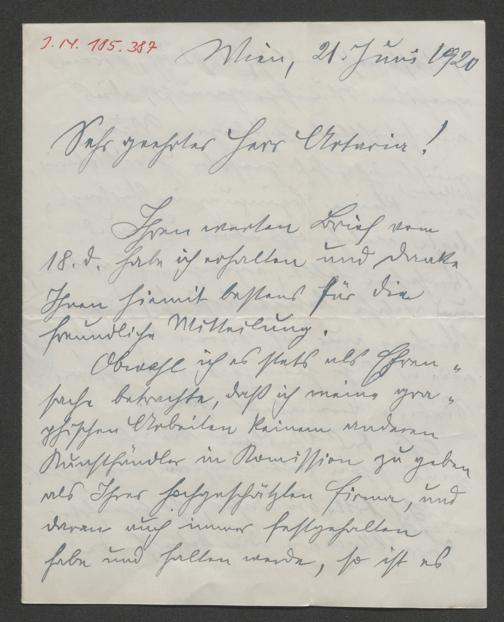 J.N. 185.387
Wien, 21. Juni 1920
Sehr geehrter Herr Artaria!
Ihren werten Brief vom
18. d. habe ich erhalten und danke
Ihnen hiemit bestens für die
freundliche Mitteilung.
Obwohl ich es stets als Ehren-
sache betrachte, daß ich meine gra-
phischen Arbeiten keinem anderen
Kunsthändler in Komission zu geben
als Ihrer hochgeschätzten Firma, und
daran auch immer festgehalten
habe und halten werde, so ist es